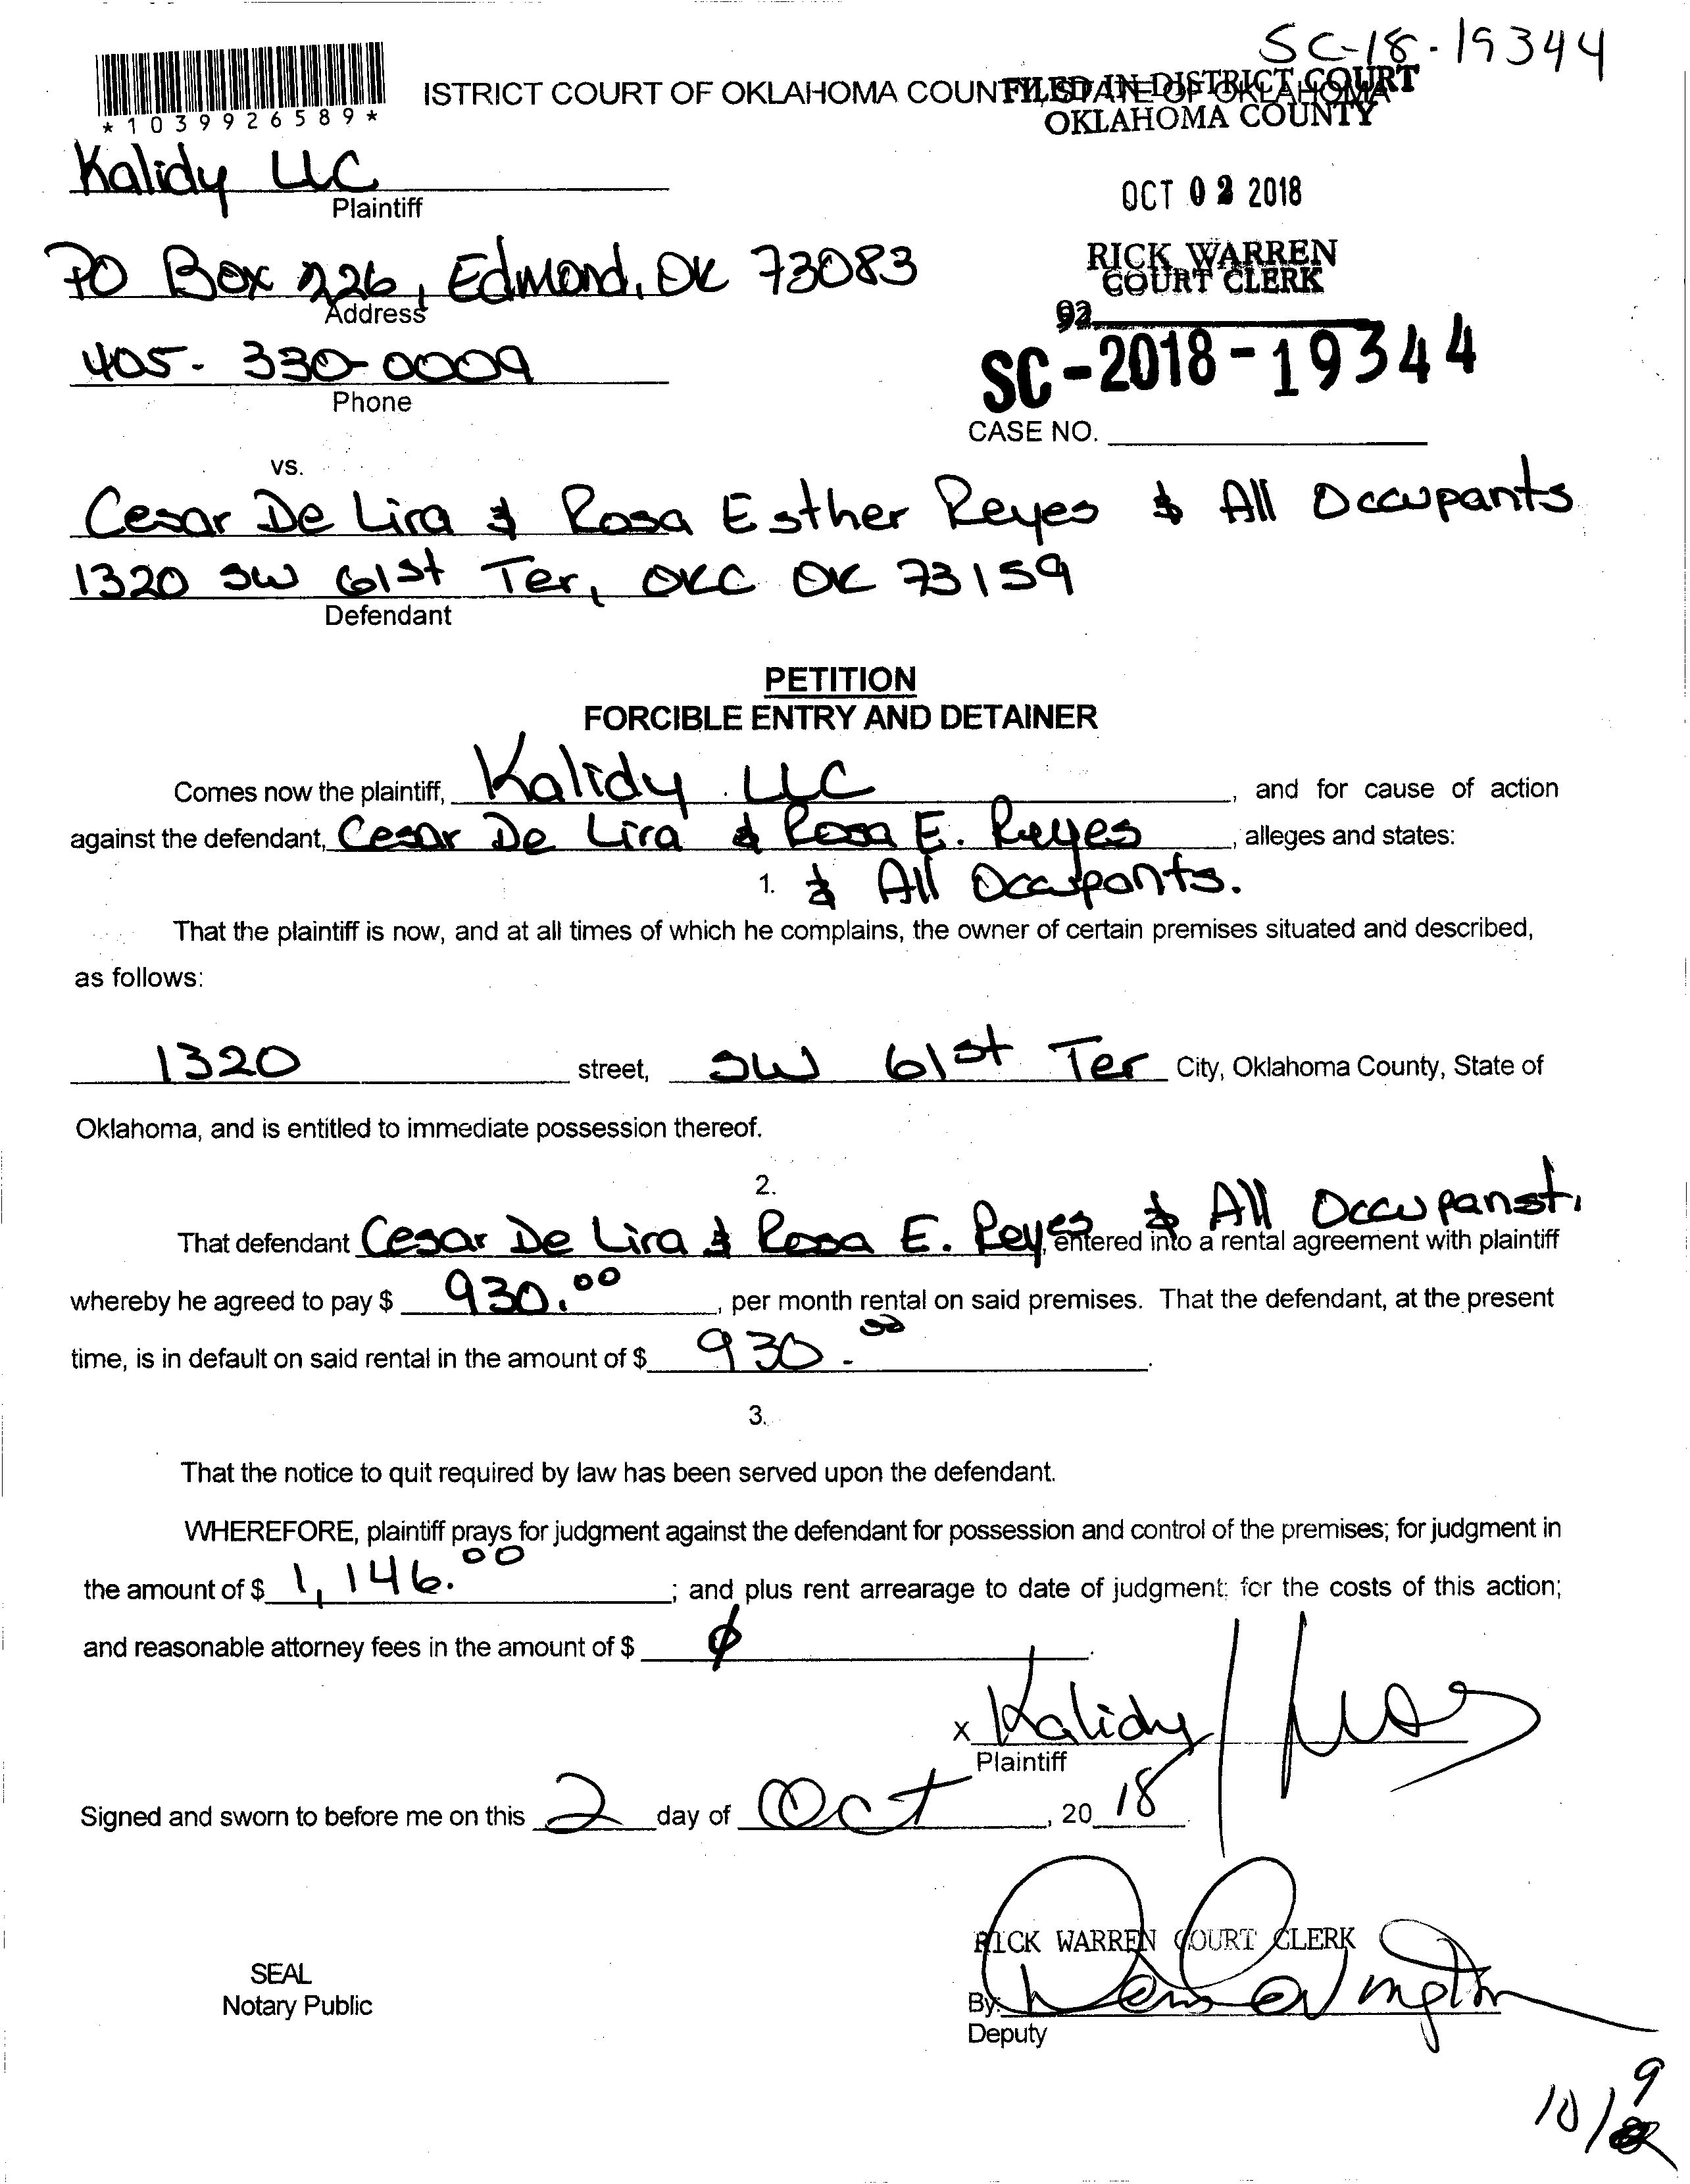 SC-18-19344
*1039926589*
ISTRICT COURT OF OKLAHOMA COUNTY, STATE OF OKLAHOMA
FILED IN DISTRICT COURT
OKLAHOMA COUNTY
Kalidy LLC
Plaintiff
OCT 02 2018
PO Box 226, Edmond, OK 73083
Address
RICK WARREN
COURT CLERK
92
405-330-0009
Phone
SC-2018-19344
CASE NO.
vs.
Cesar De Lira & Rosa Esther Reyes & All Occupants
1320 SW 61st Ter, OKC OK 73159
Defendant
PETITION
FORCIBLE ENTRY AND DETAINER
Comes now the plaintiff, Kalidy LLC, and for cause of action
against the defendant, Cesar De Lira & Rosa E. Reyes, alleges and states:
1. & All Occupants.
That the plaintiff is now, and at all times of which he complains, the owner of certain premises situated and described,
as follows:
1320 street, SW 61st Ter City, Oklahoma County, State of
Oklahoma, and is entitled to immediate possession thereof.
2.
That defendant Cesar De Lira & Rosa E. Reyes & All Occupanst, entered into a rental agreement with plaintiff
whereby he agreed to pay $ 930.00, per month rental on said premises. That the defendant, at the present
time, is in default on said rental in the amount of $ 930.00.
3.
That the notice to quit required by law has been served upon the defendant.
WHEREFORE, plaintiff prays for judgment against the defendant for possession and control of the premises; for judgment in
the amount of $ 1,146.00; and plus rent arrearage to date of judgment: for the costs of this action;
and reasonable attorney fees in the amount of $ ∅.
X Kalidy /
Plaintiff
Signed and sworn to before me on this 2 day of Oct, 20 18.
RICK WARREN COURT CLERK
SEAL
Notary Public
By:
Deputy
10/9